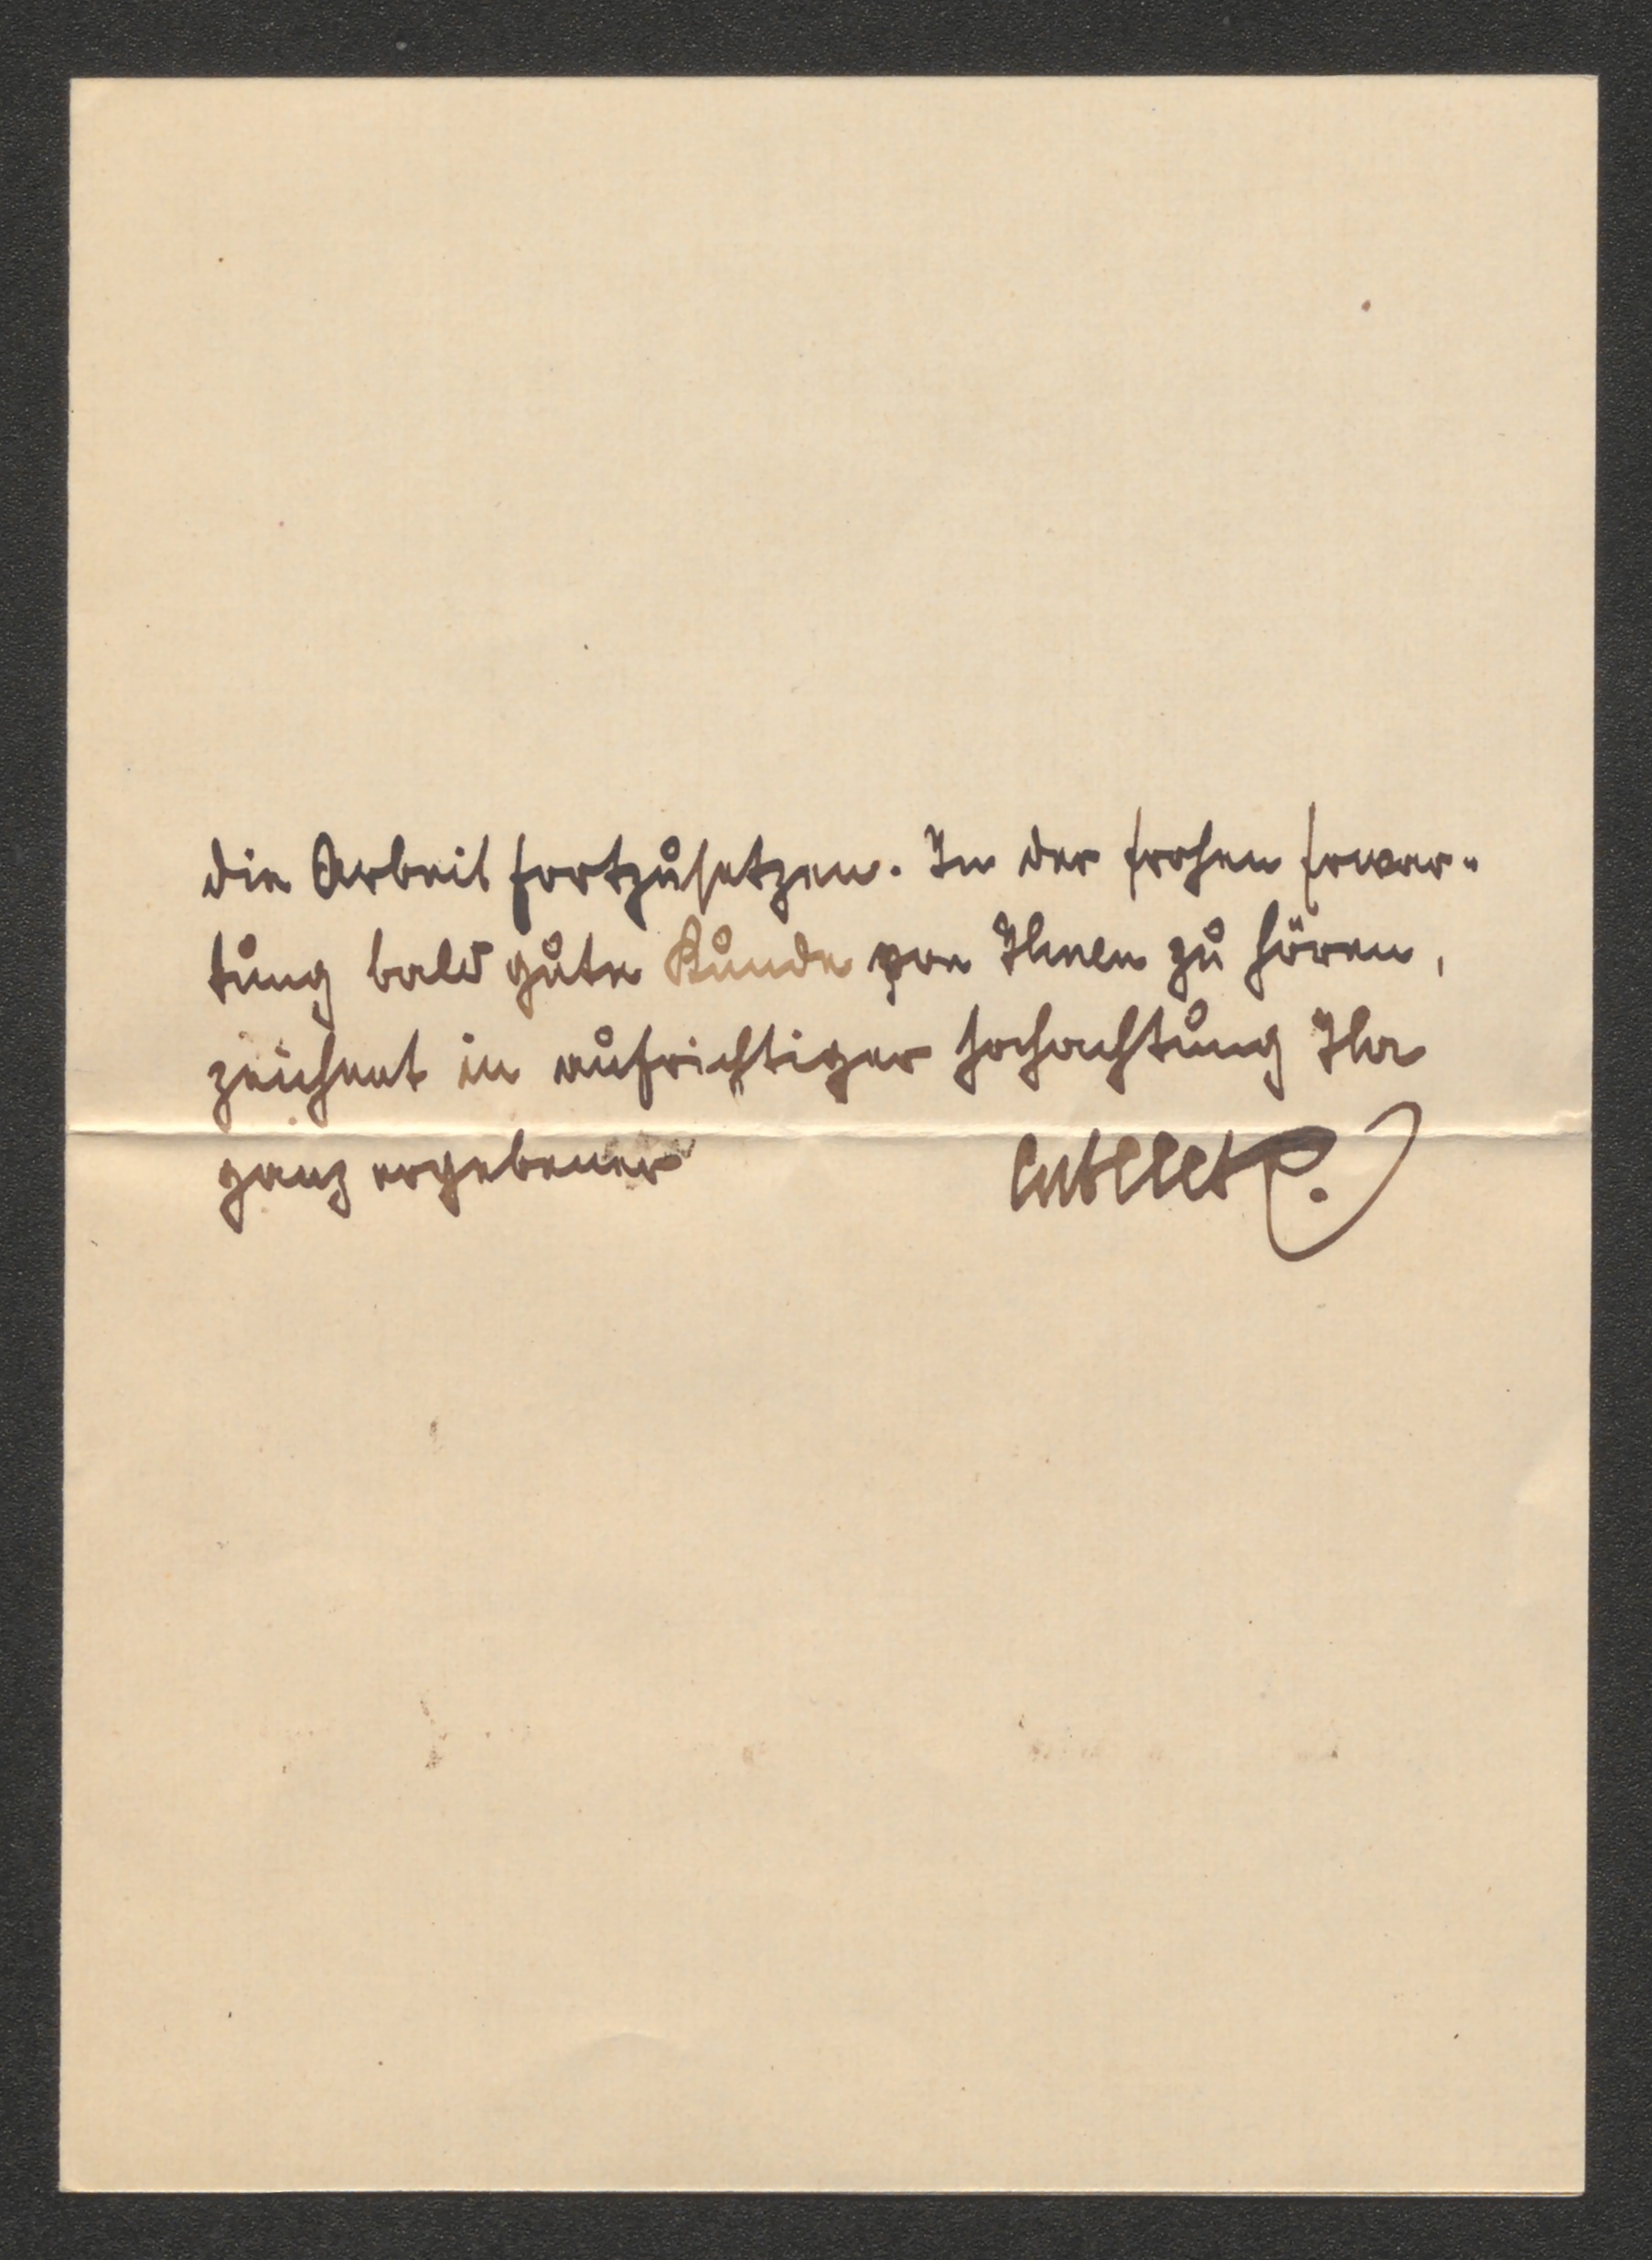 die Arbeit fortzusetzen. In der frohen Erwar-
tung bald gute Kunde von Ihnen zu hören,
zeichnet in aufrichtiger Hochachtung Ihr
ganz ergebener